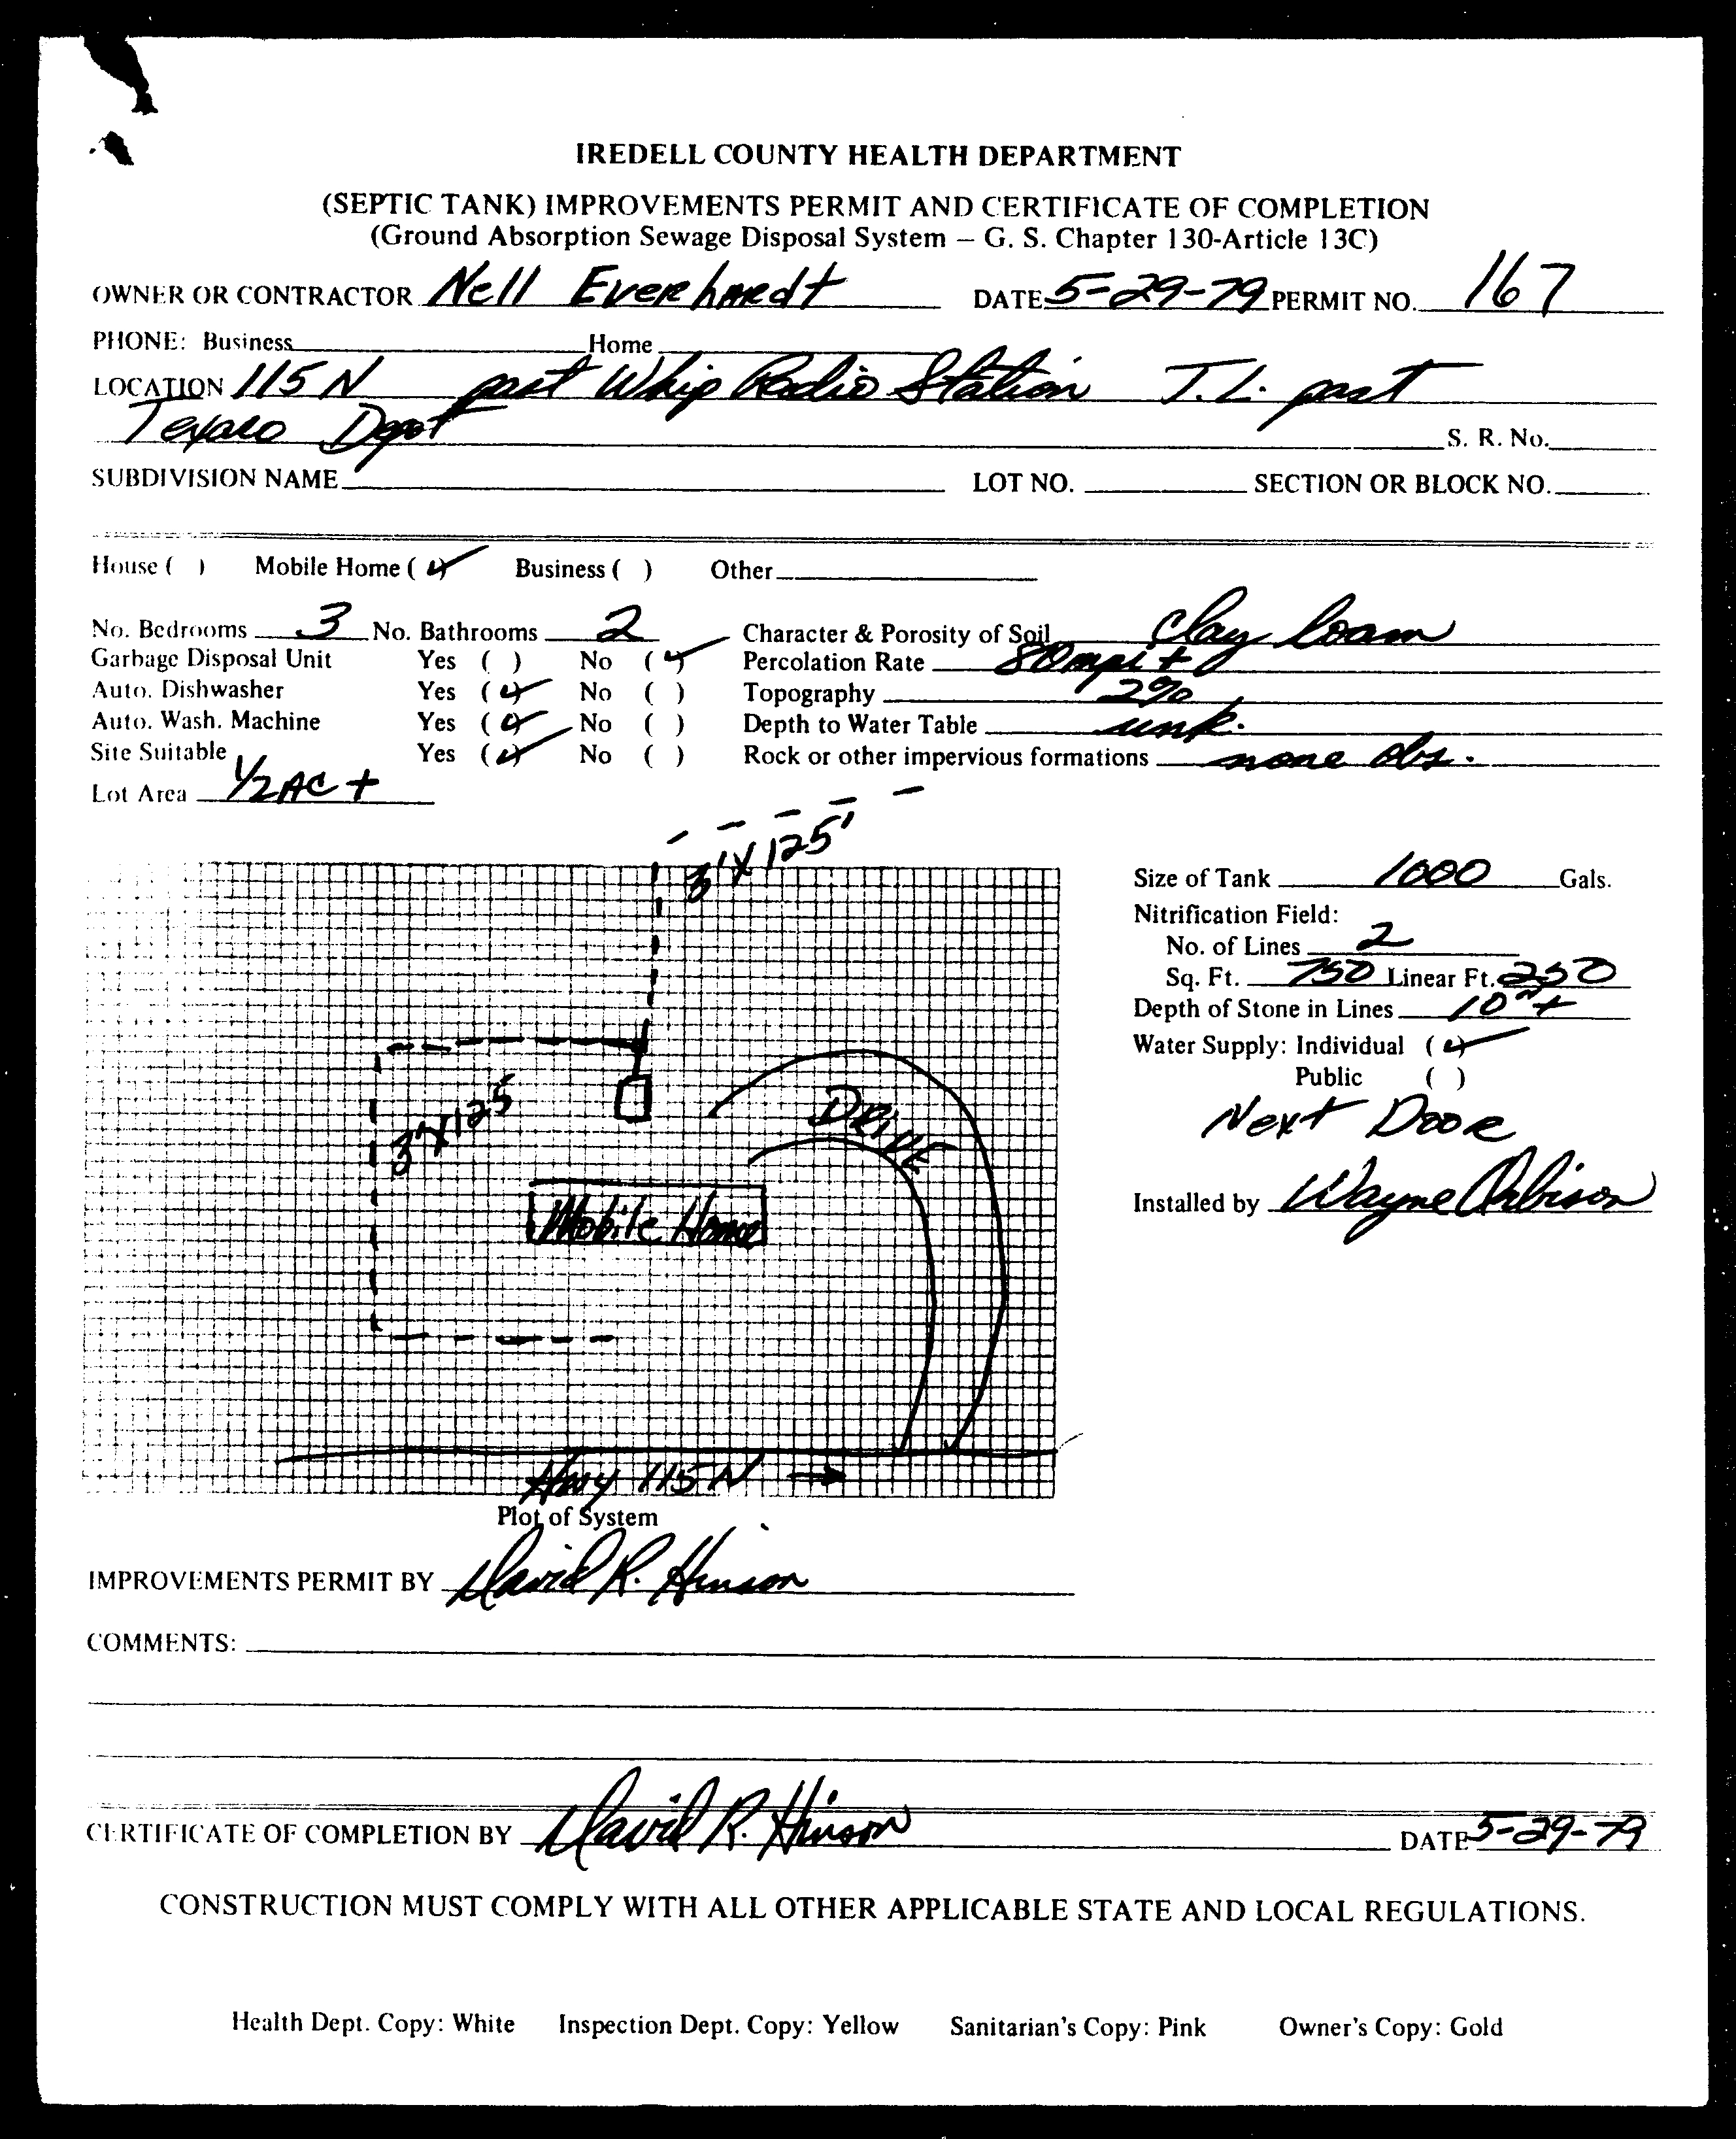 IREDELL COUNTY HEALTH DEPARTMENT
(SEPTIC TANK) IMPROVEMENTS PERMIT AND CERTIFICATE OF COMPLETION
(Ground Absorption Sewage Disposal System – G. S. Chapter 130-Article 13C)
OWNER OR CONTRACTOR Nell Everhardt DATE 5-29-79 PERMIT NO. 167
PHONE: Business Home
LOCATION 115 N past Whip Radio Station T.L. past
Texaco Depot S. R. No.
SUBDIVISION NAME LOT NO. SECTION OR BLOCK NO.
House ( ) Mobile Home (✓) Business ( ) Other
No. Bedrooms 3 No. Bathrooms 2 Character & Porosity of Soil Clay loam
Garbage Disposal Unit Yes ( ) No (✓) Percolation Rate 80 mpi +
Auto. Dishwasher Yes (✓) No ( ) Topography 2%
Auto. Wash. Machine Yes (✓) No ( ) Depth to Water Table unk.
Site Suitable Yes (✓) No ( ) Rock or other impervious formations none obs.
Lot Area 1/2 AC +
3' X 125'
Size of Tank 1000 Gals.
Nitrification Field:
No. of Lines 2
Sq. Ft. 750 Linear Ft. 250
Depth of Stone in Lines 10" +
Water Supply: Individual (✓)
Public ( )
Next Door
Installed by Wayne Orbison
3' X 125
DRIVE
Mobile Home
Hwy 115 N →
Plot of System
IMPROVEMENTS PERMIT BY David R. Hinson
COMMENTS:
CERTIFICATE OF COMPLETION BY David R. Hinson DATE 5-29-79
CONSTRUCTION MUST COMPLY WITH ALL OTHER APPLICABLE STATE AND LOCAL REGULATIONS.
Health Dept. Copy: White Inspection Dept. Copy: Yellow Sanitarian's Copy: Pink Owner's Copy: Gold